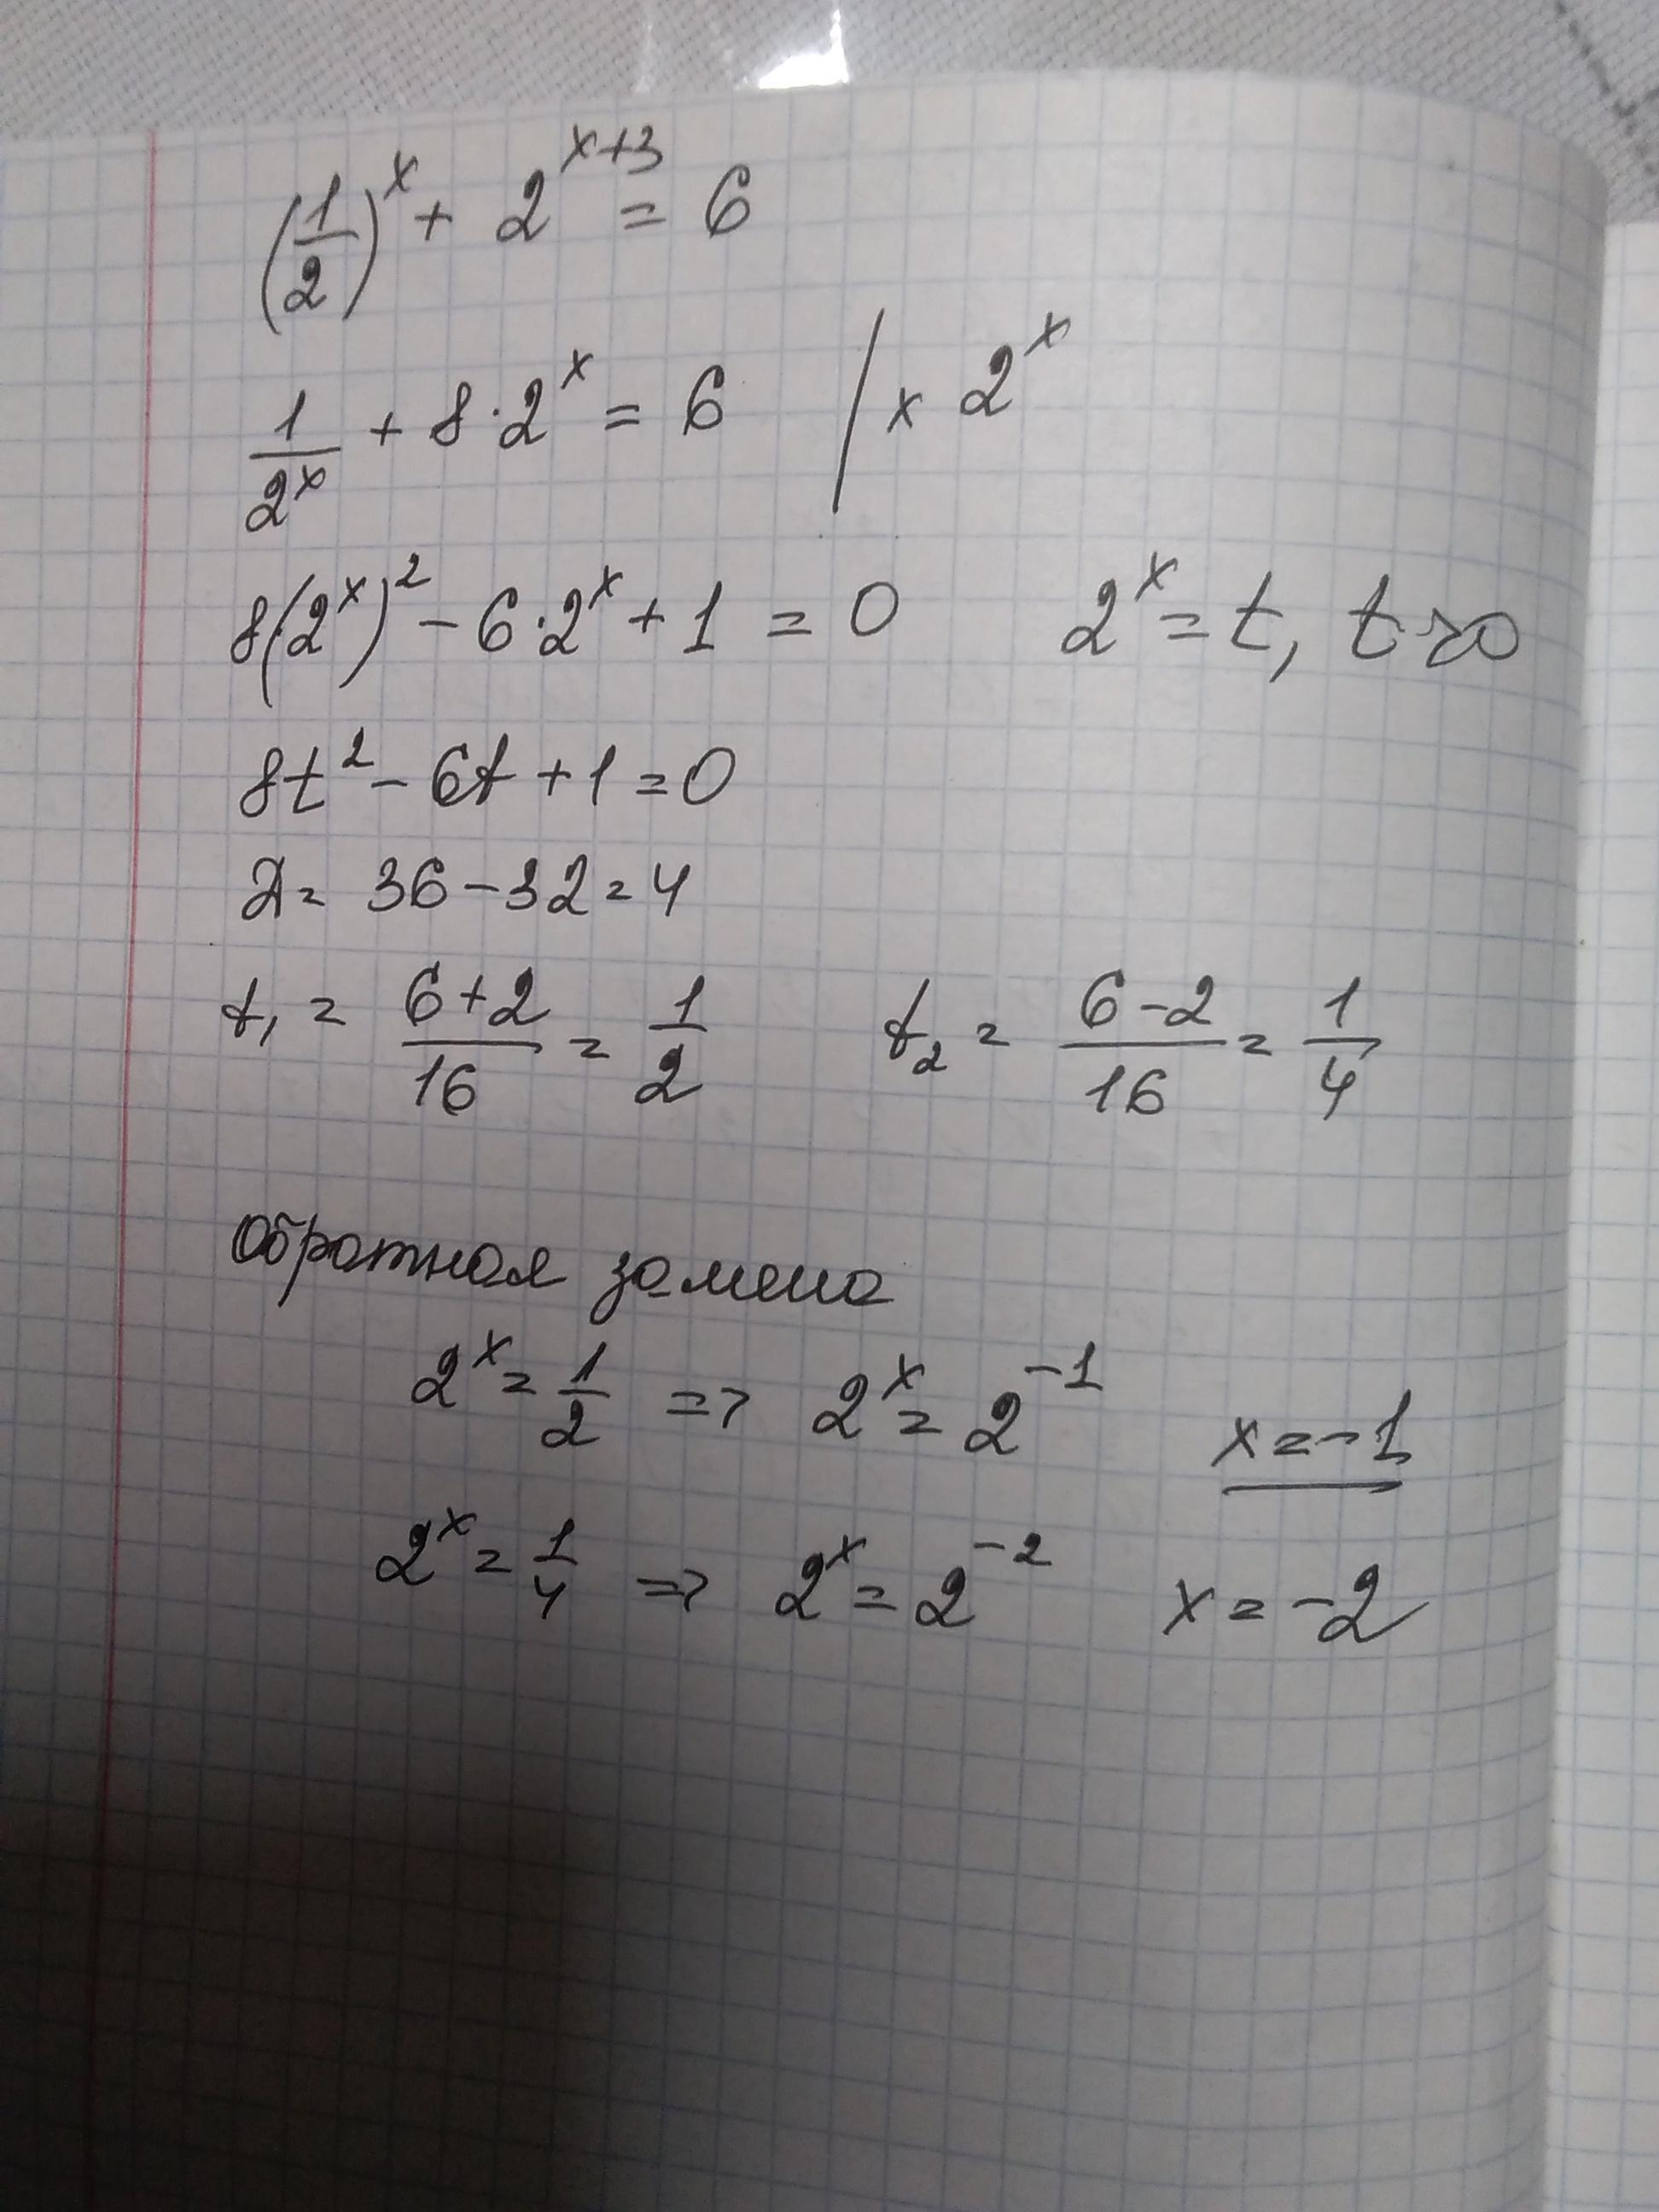 (1/2)^x + 2^(x+3) = 6
1/2^x + 8·2^x = 6 | × 2^x
8·(2^x)^2 − 6·2^x + 1 = 0 2^x = t, t > 0
8t^2 − 6t + 1 = 0
D = 36 − 32 = 4
t₁ = (6+2)/16 = 1/2 t₂ = (6−2)/16 = 1/4
Обратная замена
2^x = 1/2 => 2^x = 2^(−1) x = −1
2^x = 1/4 => 2^x = 2^(−2) x = −2